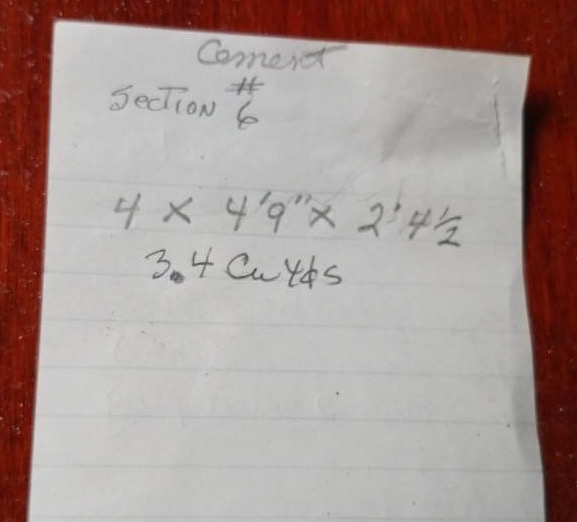 Cement
Section #6
4 x 4'9" x 2' 4 1/2
3.4 Cu Yds